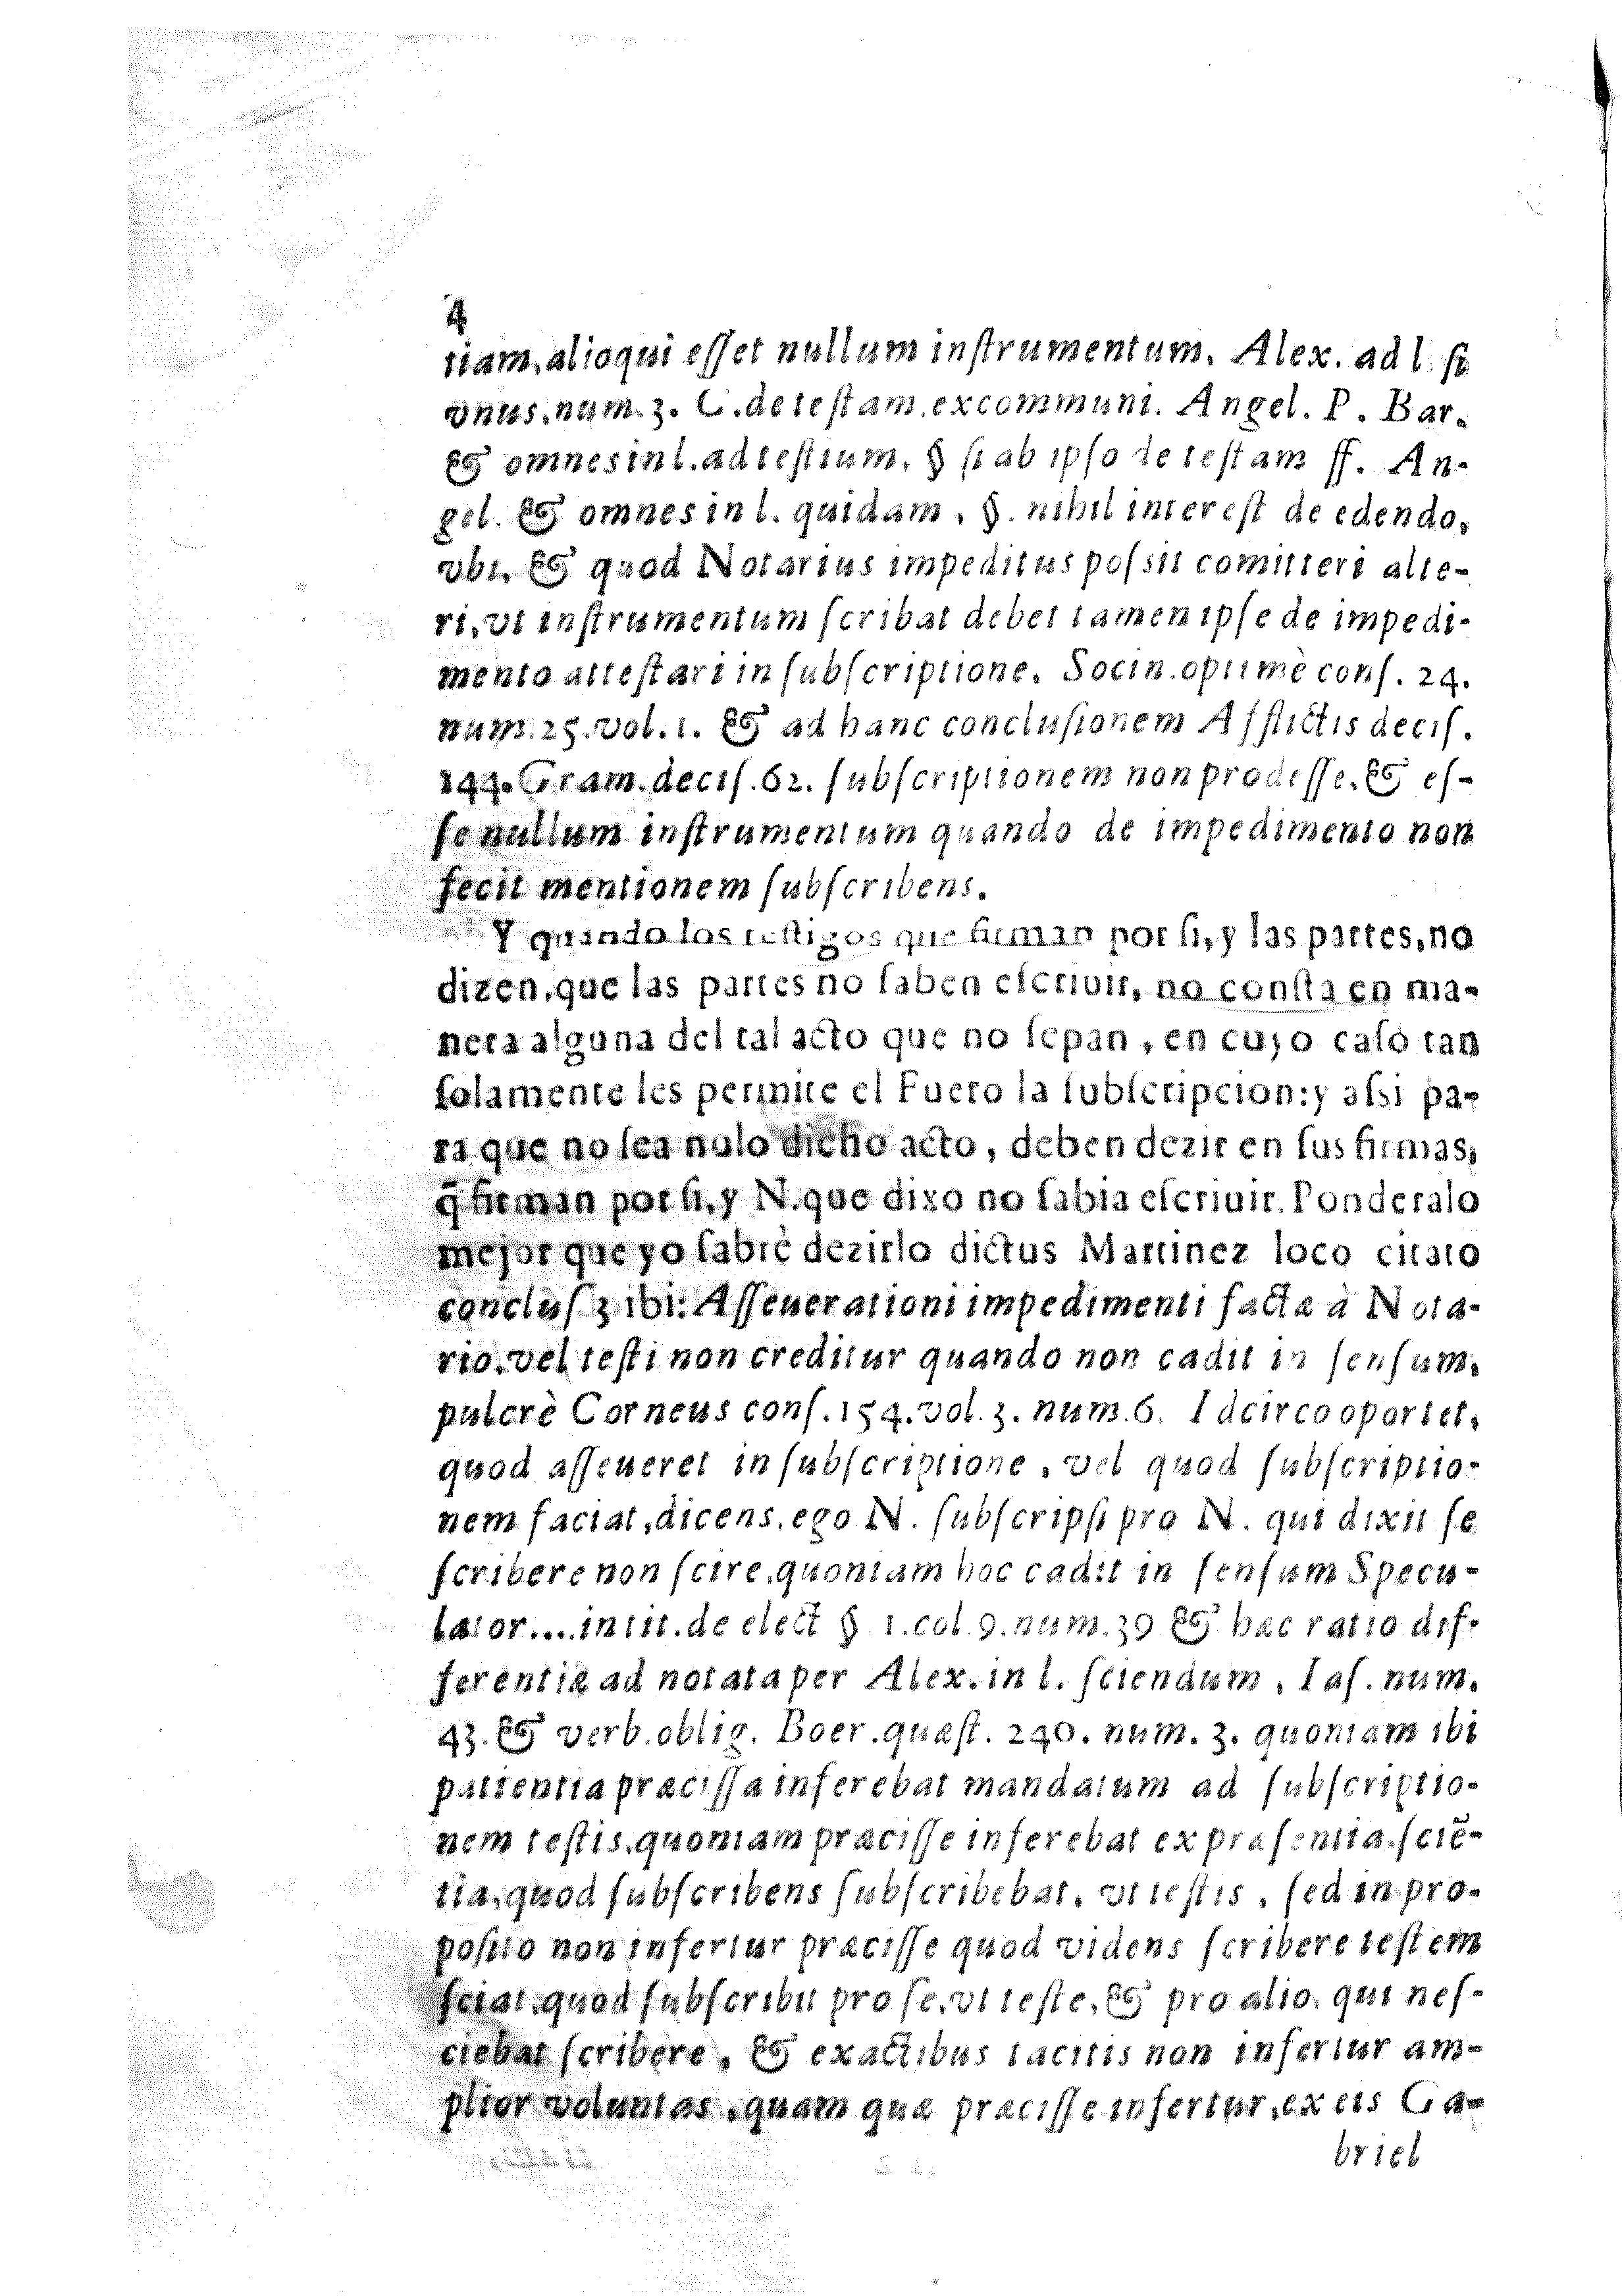 4
tiam, alioqui eſſet nullum inſtrumentum. Alex. ad l. ſi
vnus. num. 3. C. de teſtam. ex communi. Angel. P. Bar.
& omnes in l. ad teſtium, § ſi ab ipſo de teſtam ff. An-
gel. & omnes in l. quidam, §. nihil intereſt de edendo,
vbi, & quod Notarius impeditus poſsit comitteri alte-
ri, vt inſtrumentum ſcribat debet tamen ipſe de impedi-
mento atteſtari in ſubſcriptione. Socin. optimè conſ. 24.
num. 25. vol. 1. & ad hanc concluſionem Afflictis deciſ.
144. Gram. deciſ. 62. ſubſcriptionem non prodeſſe, & eſ-
ſe nullum inſtrumentum quando de impedimento non
fecit mentionem ſubſcribens.
Y quando los teſtigos que firman por ſi, y las partes, no
dizen, que las partes no ſaben eſcriuir, no conſta en ma-
nera alguna del tal acto que no ſepan, en cuyo caſo tan
ſolamente les permite el Fuero la ſubſcripcion: y aſsi pa-
ra que no ſea nulo dicho acto, deben dezir en ſus firmas,
q̃ firman por ſi, y N. que dixo no ſabia eſcriuir. Ponderalo
mejor que yo ſabrè dezirlo dictus Martinez loco citato
concluſ 3 ibi: Aſſeuerationi impedimenti factæ à Nota-
rio, vel teſti non creditur quando non cadit in ſenſum,
pulcrè Corneus conſ. 154. vol. 3. num. 6. Idcirco oportet,
quod aſſeueret in ſubſcriptione, vel quod ſubſcriptio-
nem faciat, dicens, ego N. ſubſcripſi pro N. qui dixit ſe
ſcribere non ſcire, quoniam hoc cadit in ſenſum Specu-
lator.... in tit. de elect § 1. col. 9. num. 39 & hæc ratio dif-
ferentiæ ad notata per Alex. in l. ſciendum, Iaſ. num.
43. & verb. oblig. Boer. quæſt. 240. num. 3. quoniam ibi
patientia præciſſa inferebat mandatum ad ſubſcriptio-
nem teſtis, quoniam præciſſe inferebat ex præſentia, ſciẽ-
tia, quod ſubſcribens ſubſcribebat, vt teſtis, ſed in pro-
poſito non infertur præciſſe quod videns ſcribere teſtem
ſciat, quod ſubſcribit pro ſe, vt teſte, & pro alio, qui neſ-
ciebat ſcribere, & ex actibus tacitis non infertur am-
plior voluntas, quam quæ præciſſe infertur, ex eis Ga-
briel